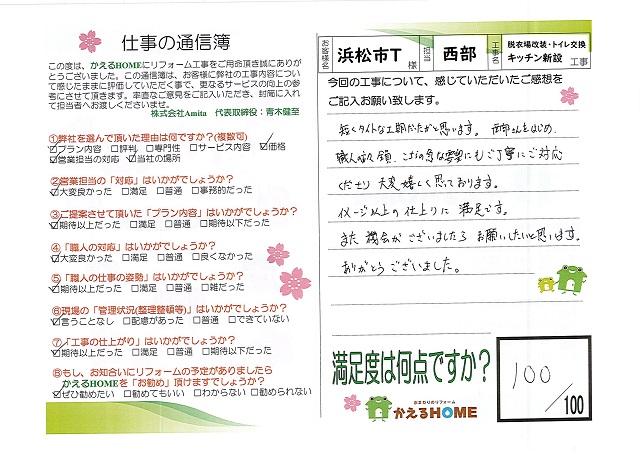 仕事の通信簿
この度は、かえるHOMEにリフォーム工事をご用命頂き誠にありが
とうございました。この通信簿は、お客様に弊社の工事内容につい
て感じたままに評価していただく事で、更なるサービスの向上の参
考にさせて頂きます。率直なご意見をご記入いただき、封筒に入れ
て担当者へお渡しくださいませ。
株式会社Amita 代表取締役:青木健至
①弊社を選んで頂いた理由は何ですか?(複数可)
☑プラン内容 □評判 □専門性 □サービス内容 ☑価格
☑営業担当の対応 ☑当社の場所
②営業担当の「対応」はいかがでしょうか?
☑大変良かった □満足 □普通 □事務的だった
③ご提案させて頂いた「プラン内容」はいかがでしょうか?
☑期待以上だった □満足 □普通 □期待以下だった
④「職人の対応」はいかがでしょうか?
☑大変良かった □満足 □普通 □良くなかった
⑤「職人の仕事の姿勢」はいかがでしょうか?
☑期待以上だった □満足 □普通 □雑だった
⑥現場の「管理状況(整理整頓等)」はいかがでしょうか?
☑言うことなし □配慮があった □普通 □できていない
⑦「工事の仕上がり」はいかがでしょうか?
☑期待以上だった □満足 □普通 □期待以下だった
⑧もし、お知合いにリフォームの予定がありましたら
かえるHOMEを「お勧め」頂けますでしょうか?
☑ぜひ勧めたい □勧めてもいい □わからない □勧められない
お客様名 浜松市T 様 担当 西部 工事名 脱衣場改装・トイレ交換
キッチン新設 工事
今回の工事について、感じていただいたご感想を
ご記入お願い致します。
短くタイトな工期だったかと思います。西部さんをはじめ、
職人様々 こちらの急な要望にもご丁寧にご対応
くださり 大変嬉しく思っております。
イメージ以上の仕上りに満足です。
また機会がございましたらお願いしたいと思います。
ありがとうございました。
満足度は何点ですか?
100/100
おまわりのリフォーム
かえるHOME